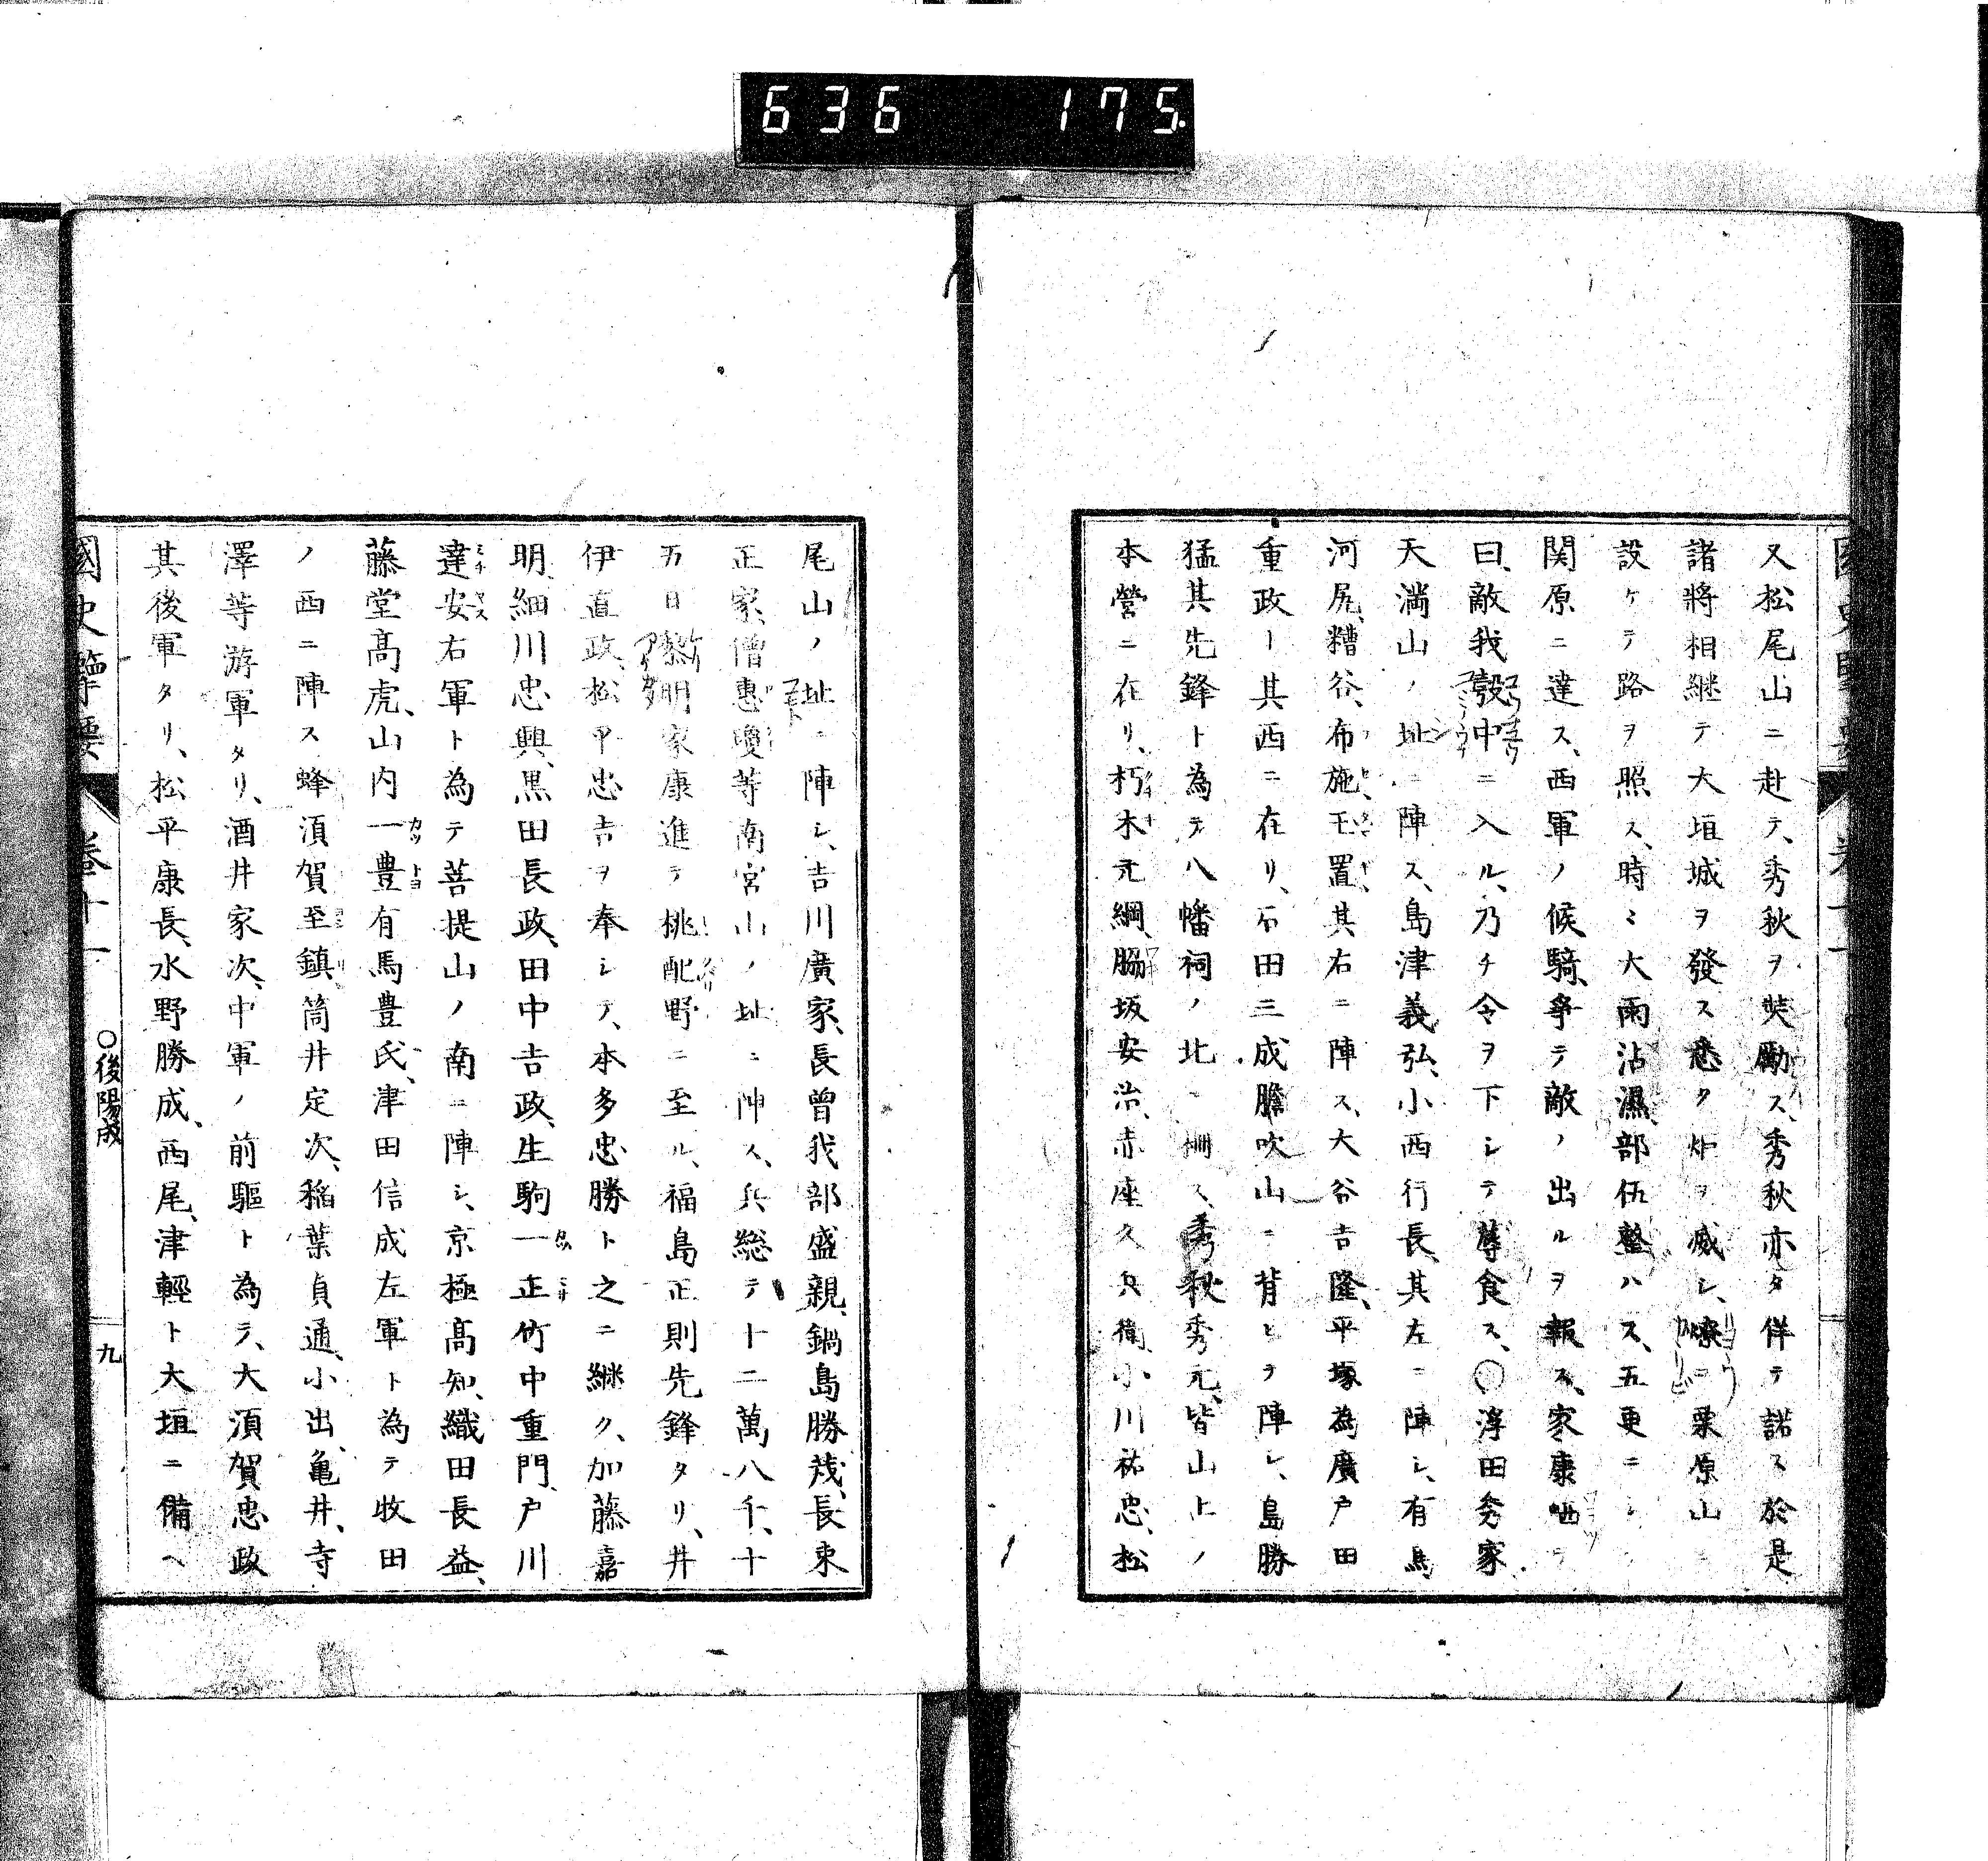 636 175.
又松尾山ニ赴テ、秀秋ヲ奘勵ス、秀秋亦タ佯テ諾ス於是
諸將相継テ大垣城ヲ發ス悉タク炉ヲ威シ、燎ニ栗原山ニ
設ケテ路ヲ照ス、時ニ大雨沾濕、部伍整ハス、五更ニシテ
関原ニ達ス、西軍ノ候騎、爭テ敵ノ出ルヲ報ス、家康哂テ
曰、敵我彀中ニ入ル、乃チ令ヲ下シテ蓐食ス、○浮田秀家
天満山ノ址ニ陣ス、島津義弘、小西行長、其左ニ陣シ、有馬
河尻、糟谷、布施、玉置、其右ニ陣ス、大谷吉隆、平塚為廣戸田
重政ー其西ニ在リ、石田三成膽吹山ニ背ヒヲ陣シ、島勝
猛其先鋒ト為テ八幡祠ノ北ニ柵ス、秀秋秀元、皆山上ノ
本營ニ在リ、朽木元綱、脇坂安治、赤座久兵衛、小川祐忠、松
尾山ノ址ニ陣シ、吉川廣家、長曾我部盛親、鍋島勝茂、長束
正家、僧惠瓊等南宮山ノ址ニ陣ス、兵総テ十二萬八千、十
五日黎明家康進テ桃配野ニ至ル、福島正則先鋒タリ、井
伊直政、松平忠吉ヲ奉シテ、本多忠勝ト之ニ継ク、加藤嘉
明、細川忠興、黒田長政、田中吉政、生駒一正竹中重門、戸川
達安右軍ト為テ菩提山ノ南ニ陣シ、京極高知、織田長益、
藤堂高虎、山内一豊有馬豊氏、津田信成左軍ト為テ牧田
ノ西ニ陣ス蜂須賀至鎮、筒井定次、稲葉貞通、小出、亀井、寺
澤等游軍タリ、酒井家次、中軍ノ前驅ト為テ、大須賀忠政
其後軍タリ、松平康長、水野勝成、西尾、津輕ト大垣ニ備ヘ
國史擥要 卷十一 ○後陽成 九